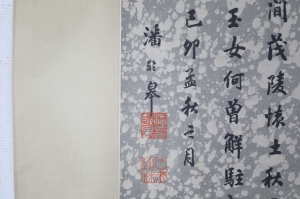 間茂陵懷土秋
玉女何曾解駐
己卯孟秋之月
潘龄皋